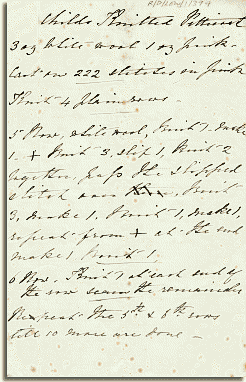 Childs Knitted Petticoat
3 oz white wool 1 oz pink.
Cast on 222 stitches in pink
Knit 4 plain rows.
5 Row, white wool, Knit 1, make
1, + Knit 3, slip 1, Knit 2
together, pass the slipped
stitch over, Knit
3, make 1, Knit 1, make 1
repeat from + at the end
make 1 Knit 1.
6 Row, Knit 1 at each end of
the row seam the remainder
Repeat the 5th & 6th rows
till 10 more are done –